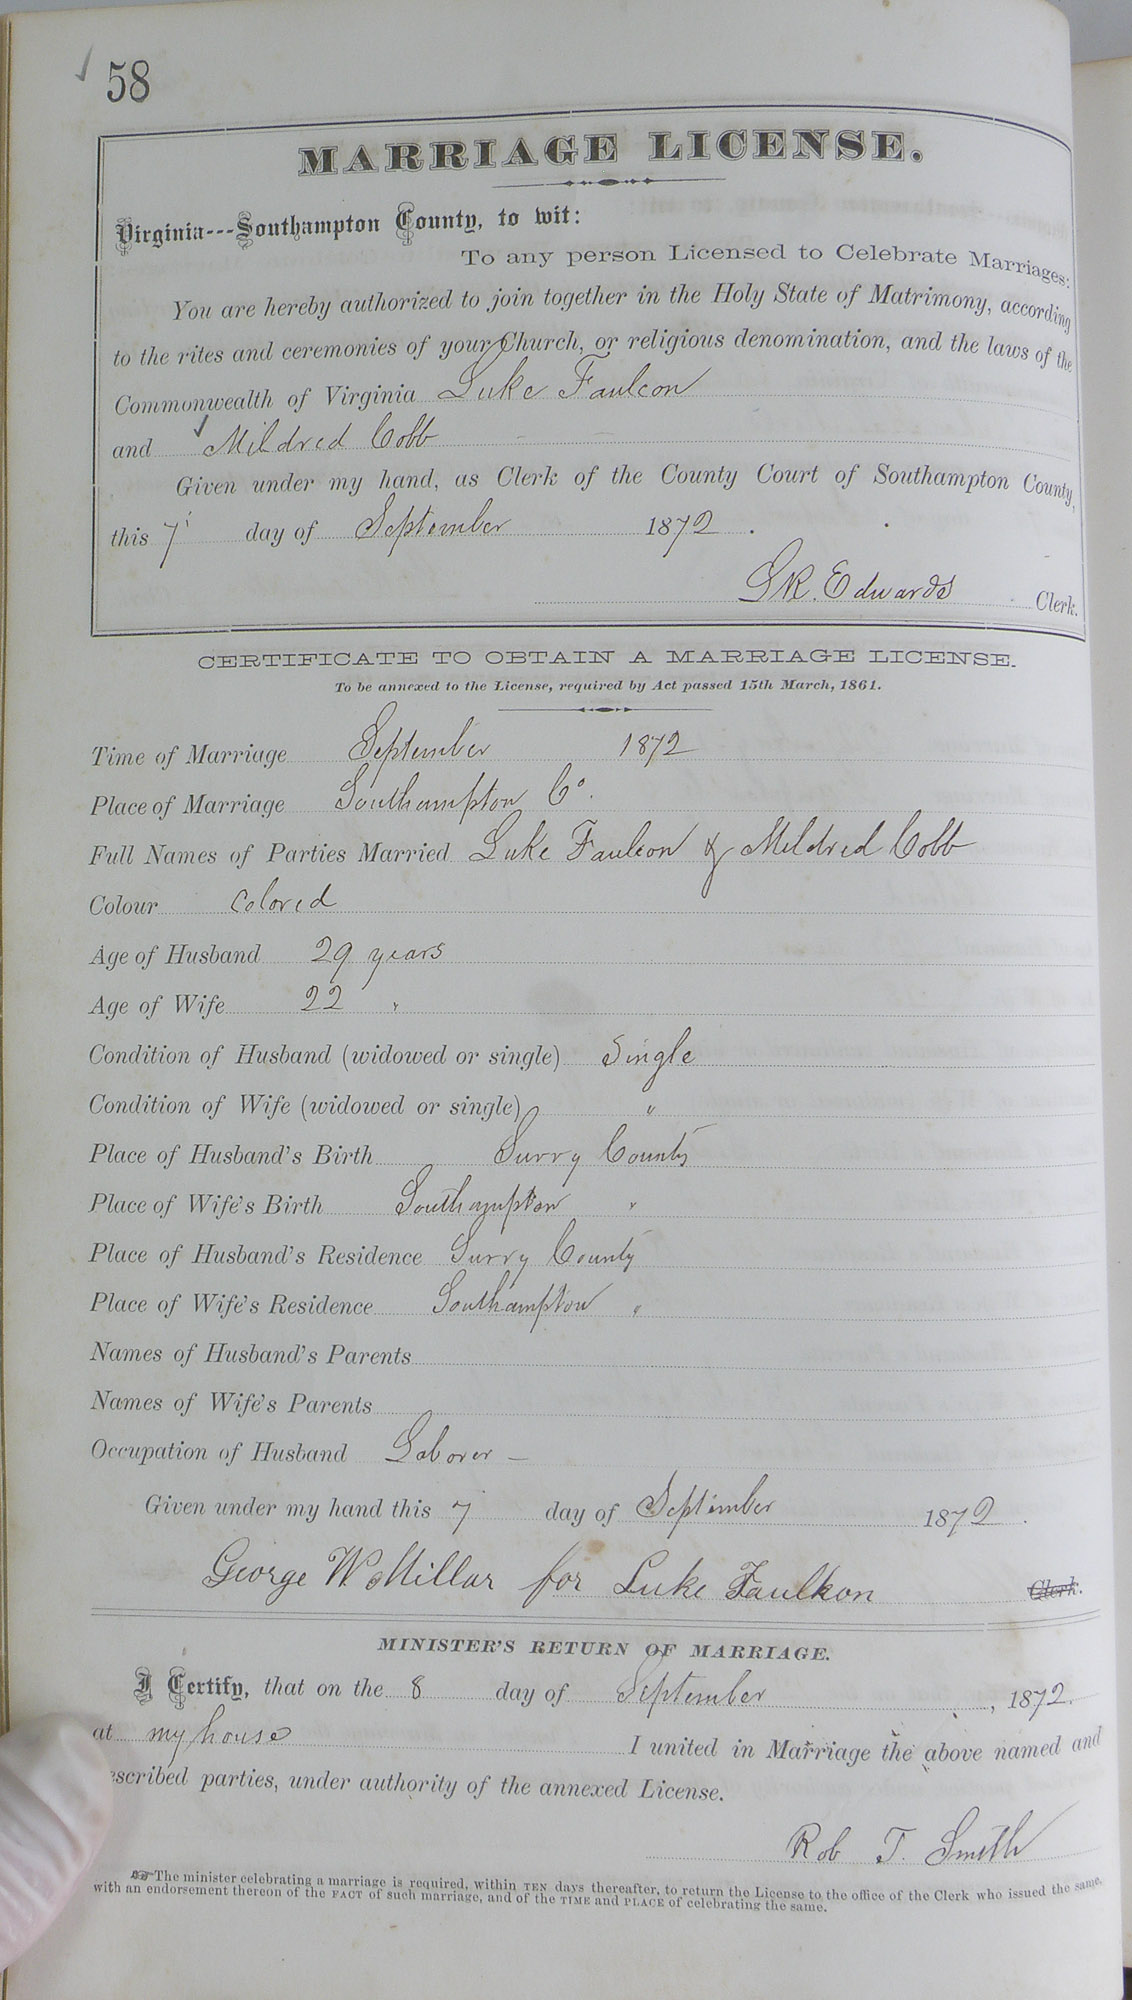 58
MARRIAGE LICENSE.
Virginia---Southampton County, to wit:
To any person Licensed to Celebrate Marriages:
You are hereby authorized to join together in the Holy State of Matrimony, according
to the rites and ceremonies of your Church, or religious denomination, and the laws of the
Commonwealth of Virginia Luke Faulcon
and Mildred Cobb
Given under my hand, as Clerk of the County Court of Southampton County,
this 7 day of September 1872.
L R. Edwards Clerk.
CERTIFICATE TO OBTAIN A MARRIAGE LICENSE.
To be annexed to the License, required by Act passed 15th March, 1861.
Time of Marriage September 1872
Place of Marriage Southampton Co.
Full Names of Parties Married Luke Faulcon & Mildred Cobb
Colour Colored
Age of Husband 29 years
Age of Wife 22 "
Condition of Husband (widowed or single) Single
Condition of Wife (widowed or single) "
Place of Husband's Birth Surry County
Place of Wife's Birth Southampton "
Place of Husband's Residence Surry County
Place of Wife's Residence Southampton "
Names of Husband's Parents
Names of Wife's Parents
Occupation of Husband Laborer –
Given under my hand this 7 day of September 1872.
George W. Millar for Luke Faulkon Clerk.
MINISTER'S RETURN OF MARRIAGE.
I Certify, that on the 8 day of September, 1872.
at my house I united in Marriage the above named and
escribed parties, under authority of the annexed License.
Rob T. Smith
The minister celebrating a marriage is required, within TEN days thereafter, to return the License to the office of the Clerk who issued the same,
with an endorsement thereon of the FACT of such marriage, and of the TIME and PLACE of celebrating the same.